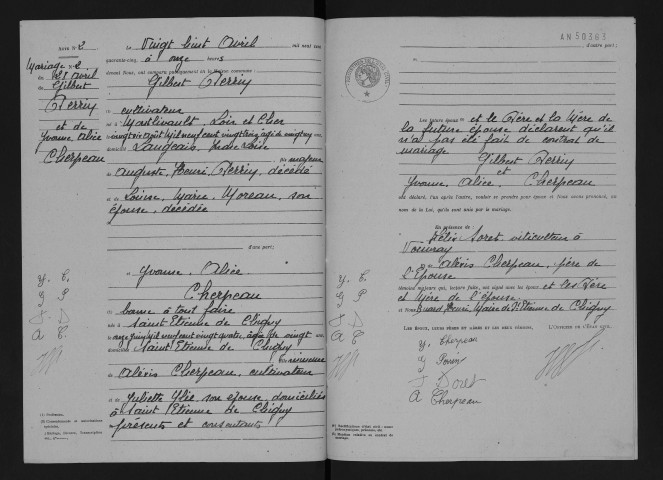 Acte N° 2
Mariage N° 2
du 28 avril
Gilbert
Perrin
et de
Yvonne Alice
Cherpeau
Le Vingt huit Avril mil neuf cent
quarante-cinq, à onze heures
devant Nous, ont comparu publiquement en la Maison commune
Gilbert Perrin
cultivateur
né à Montlivault, Loir et Cher
le vingt six août mil neuf cent vingt trois
domicilié Langeais, Indre Loire
fils majeur
Auguste Henri Perrin, décédé
et de Louise Marie Moreau, son
épouse, décédée
d'une part;
et Yvonne Alice
Cherpeau
bonne à tout faire
née à Saint Etienne de Chigny
le onze mil neuf cent vingt quatre, âgée de vingt
domiciliée Saint Etienne de Chigny
fille mineure
de Alexis Cherpeau, cultivateur
et de Juliette son épouse, domiciliés
à Saint Etienne de Chigny
présents et consentants
Y. C.
G P
A C
(1) Profession.
AN 50383
d'autre part;
Les futurs époux et le Père et la Mère de
la future épouse déclarent qu'il
n'a pas été fait de contrat de
mariage
Gilbert Perrin
et
Yvonne, Alice, Cherpeau
ont déclaré, l'un après l'autre, vouloir se prendre pour époux et Nous avons prononcé, au
nom de la Loi, qu'ils sont unis par le mariage.
En présence de :
Félix Soret, viticulteur à
Vouvray
et de Alexis Cherpeau, père de
l'Épouse
témoins majeurs qui, lecture faite, ont signé avec les époux et les Père
et Mère de l'épouse
et Nous Henri, Maire de St Etienne de Chigny
Les époux, leurs pères et mères et les deux témoins,
L'Officier de l'État civil,
Y. C.
G P
A C
Y. Cherpeau
G Perrin
F Soret
A Cherpeau